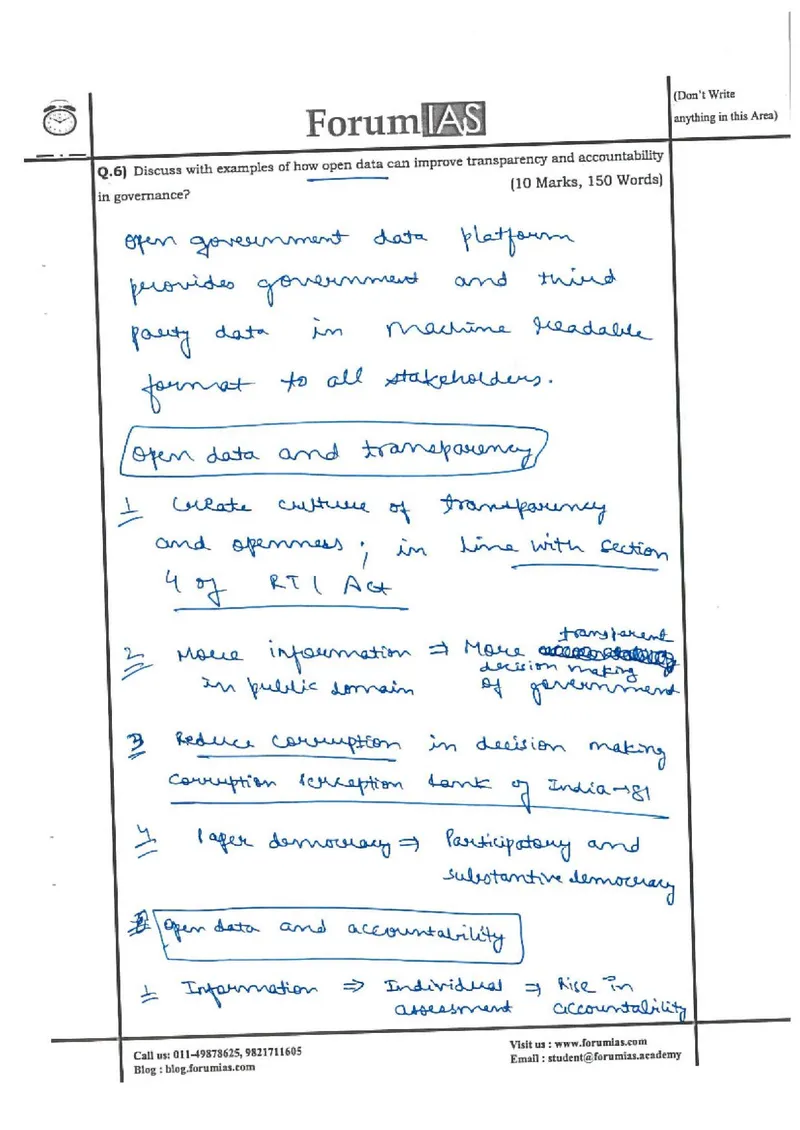 (Don't Write
anything in this Area)
ForumIAS
Q.6) Discuss with examples of how open data can improve transparency and accountability
in governance?
(10 Marks, 150 Words)
open government data platform
provides government and third
party data in machine readable
format to all stakeholders.
Open data and transparency
1 Create culture of transparency
and openness; in line with section
4 of RTI Act
2. More information ⇒ More transparent
in public domain decision making
of government
3 Reduce corruption in decision making
corruption perception rank of India → 81
4. Paper democracy ⇒ Participatory and
substantive democracy
Open data and accountability
1 Information ⇒ Individual ⇒ Rise in
assessment accountability
Call us: 011-49878625, 9821711605
Blog : blog.forumias.com
Visit us : www.forumias.com
Email : student@forumias.academy